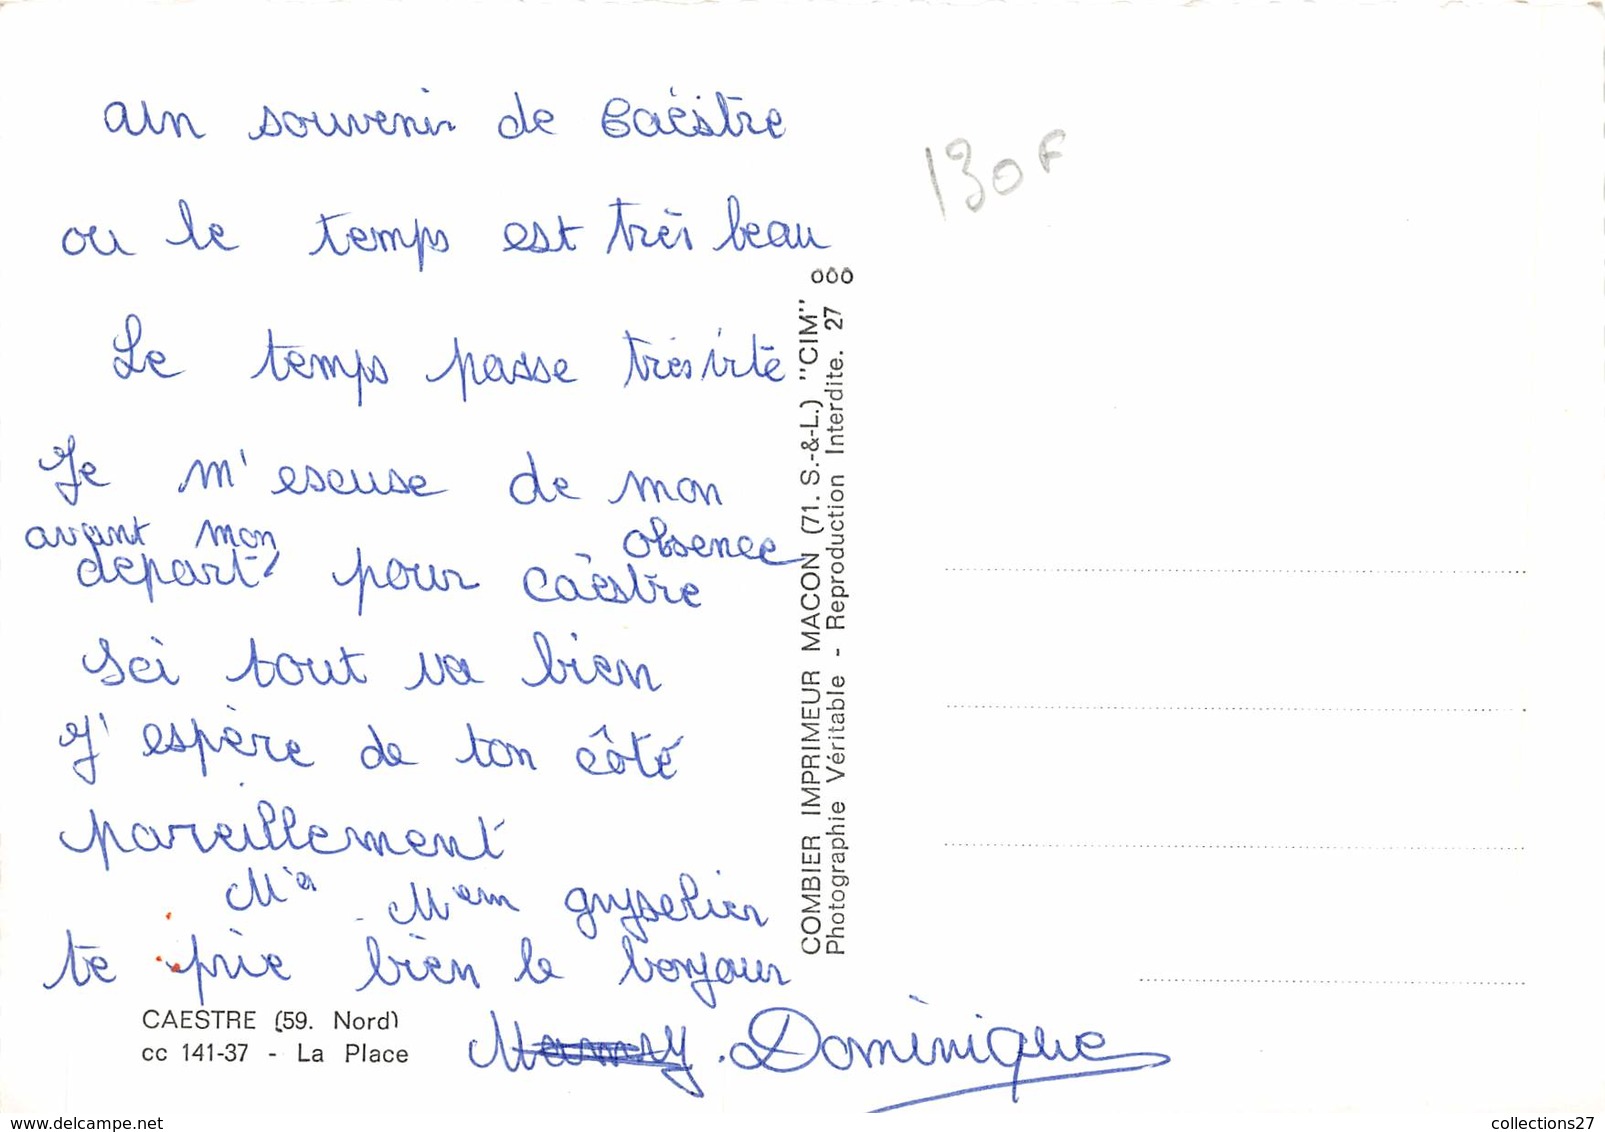 un souvenir de Caéstre
ou le temps est très beau
Le temps passe très vite
Je m'escuse de mon
avant mon obsence
départ pour Caéstre
Ici tout va bien
J'espère de ton côté
pareillement
Mr Mem gryselier
te prie bien le bonjour
Mamy. Dominique
CAESTRE (59. Nord)
cc 141-37 - La Place
COMBIER IMPRIMEUR MACON (71. S.-&-L.) "CIM"
Photographie Véritable - Reproduction Interdite. 27
130F
collections27